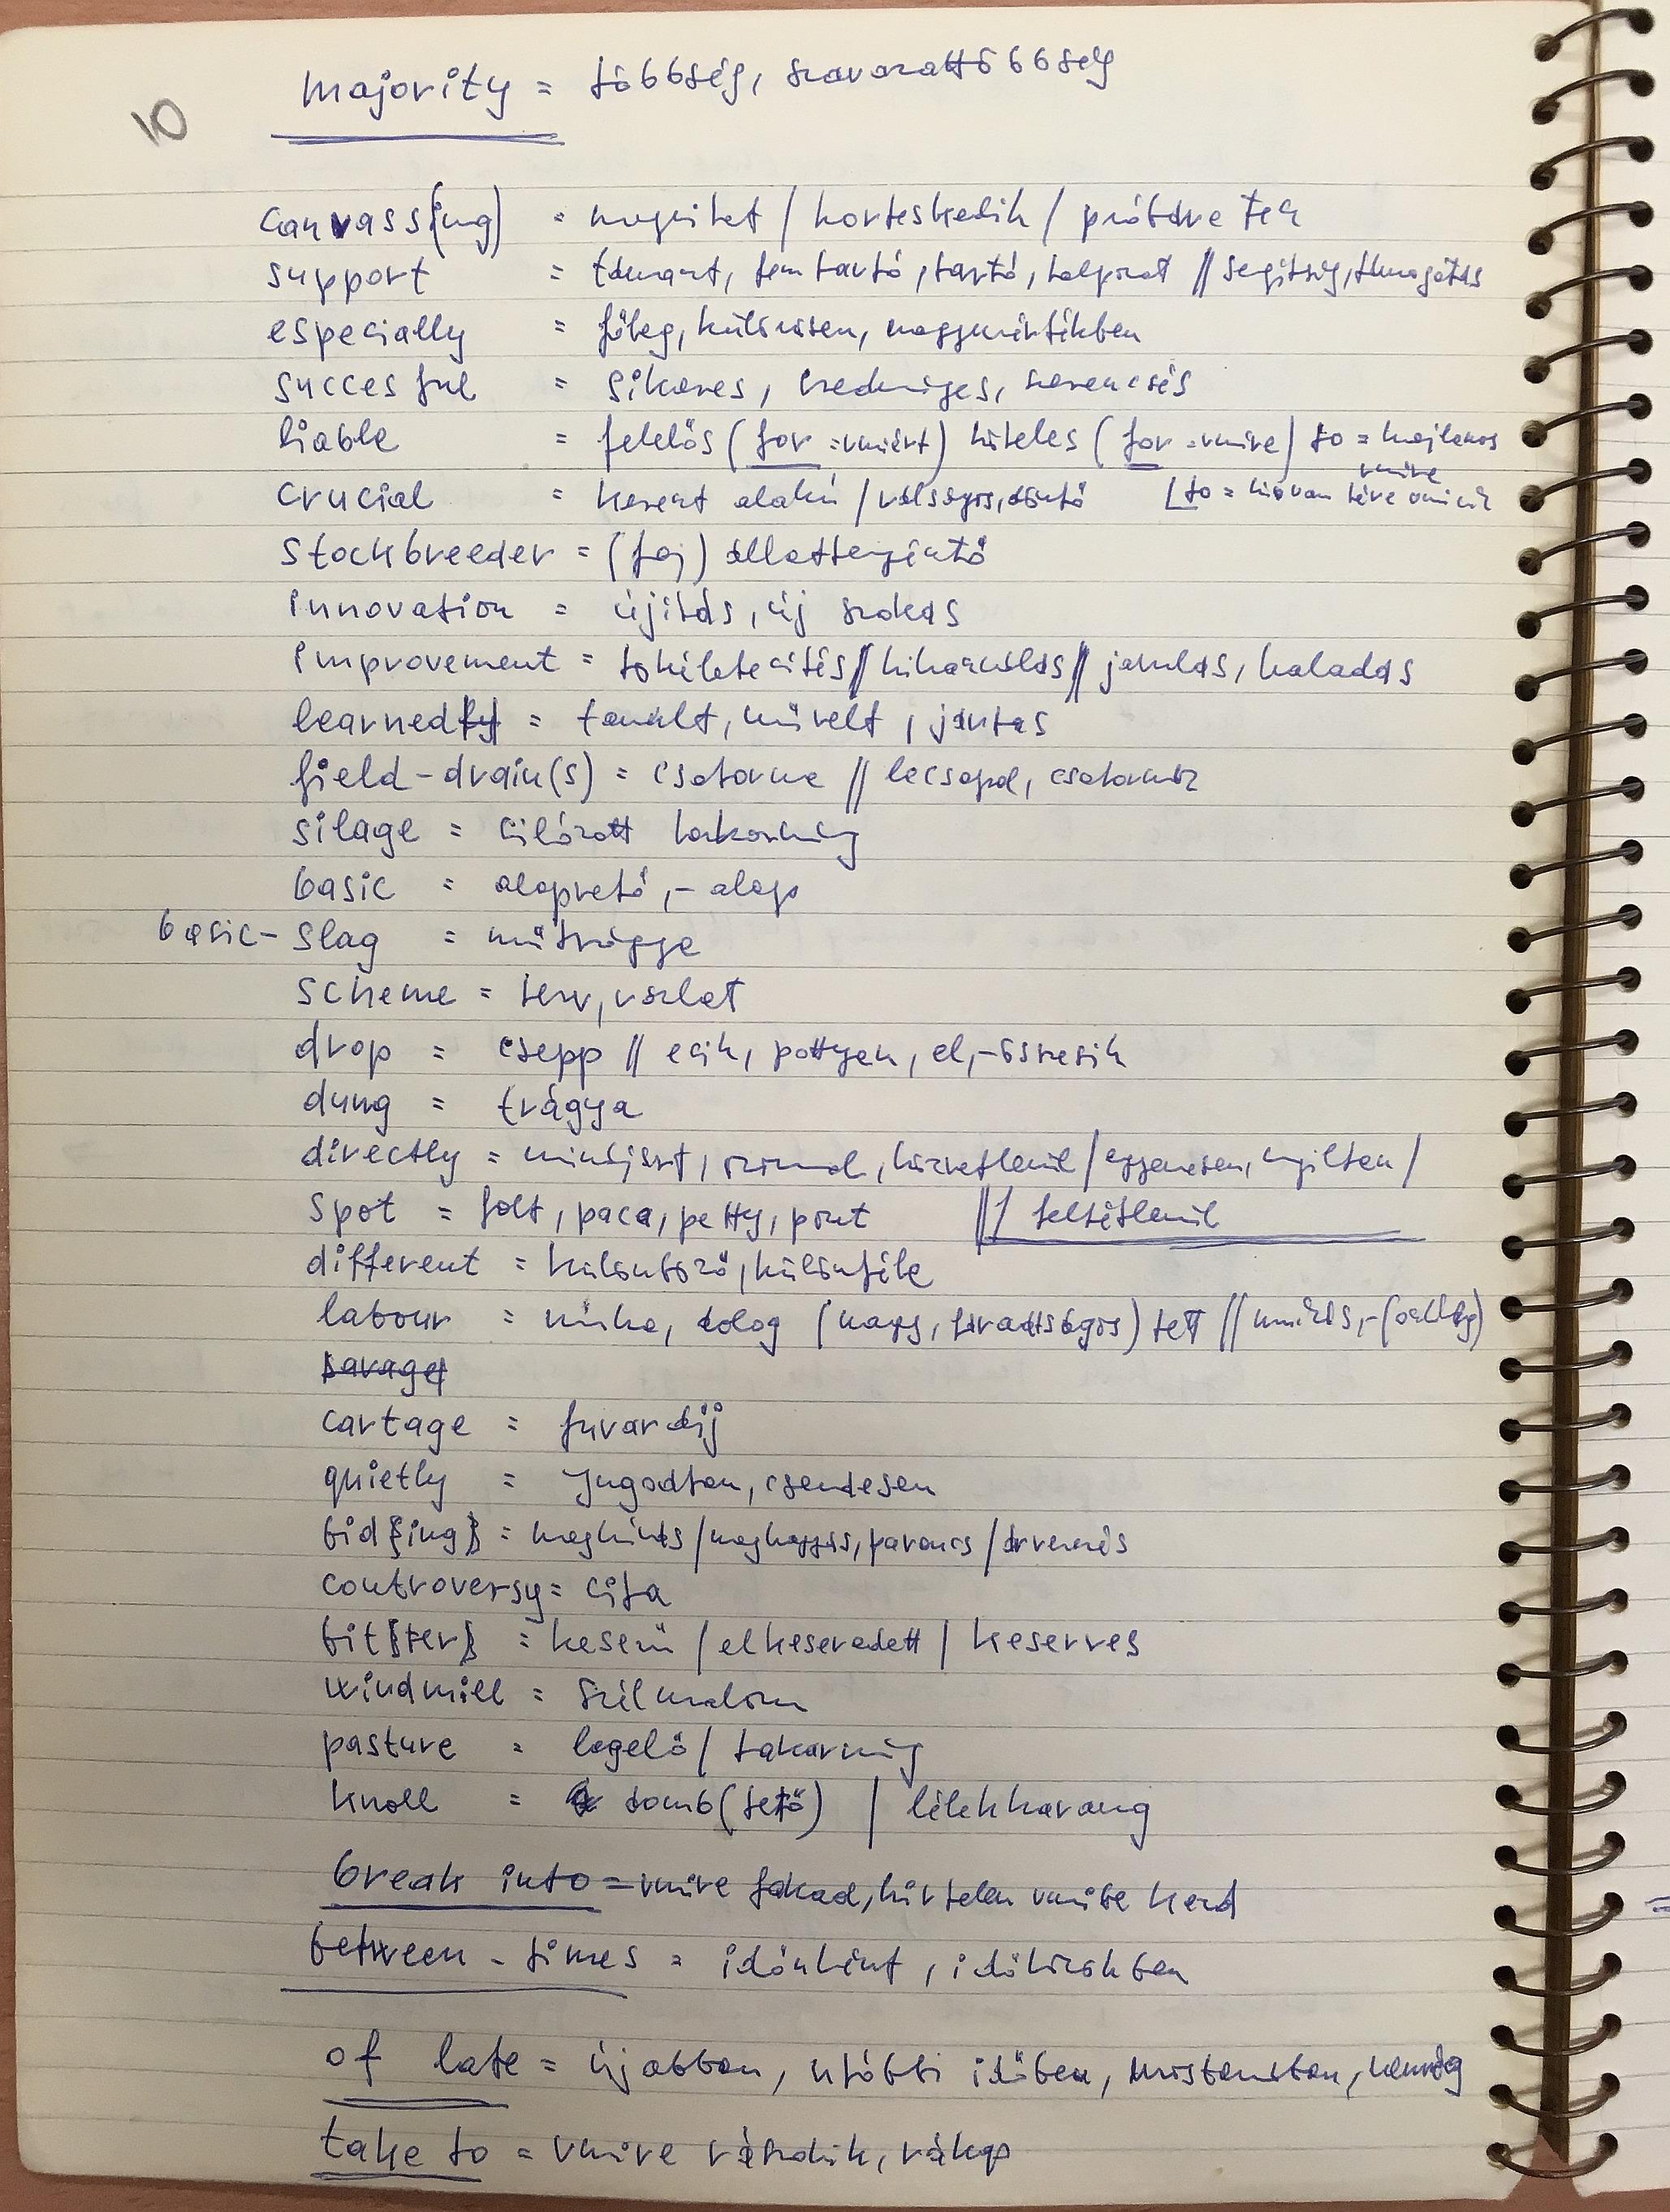 majority = többség, szavazattöbbség
10
canvass(ing) = / korteskedik / próbára tesz
support = támasz, fenntartó, tartó, talpazat // segítség, támogatás
especially = főleg, különösen, nagymértékben
succesful = sikeres, eredményes, szerencsés
liable = felelős (for = vmiért) köteles (for = vmire) to = hajlamos vmire
crucial = kereszt alakú / válságos, döntő [to = ki van téve vminek
stockbreeder = (faj) állattenyésztő
innovation = újítás, új szokás
improvement = tökéletesítés // kihasználás // javulás, haladás
learned(ly) = tanult, művelt, jártas
field-drain(s) = csatorna // lecsapol, csatornáz
silage = silózott takarmány
basic = alapvető, - alap
basic- slag = műtrágya
scheme = terv, vázlat
drop = csepp // esik, pottyan, el, -összesik
dung = trágya
directly = mindjárt, azonnal, közvetlenül / egyenesen, nyíltan /
spot = folt, paca, petty, pont // / feltétlenül
different = különböző, különféle
labour = munka, dolog (nagy, fáradtságos) tett // munkás, -(osztály)
savage
cartage = fuvardíj
quietly = nyugodtan, csendesen
bid{ing} = meghívás / meghagyás, parancs / árverés
controversy = vita
bit{ter} = keserű / elkeseredett / keserves
windmill = szélmalom
pasture = legelő / takarmány
knoll = domb(tető) / lélekharang
break into = vmire fakad, hirtelen vmibe kezd
between - times = időnként, időközökben
of late = újabban, utóbbi időben, mostanában,
take to = vmire rászokik, rákap